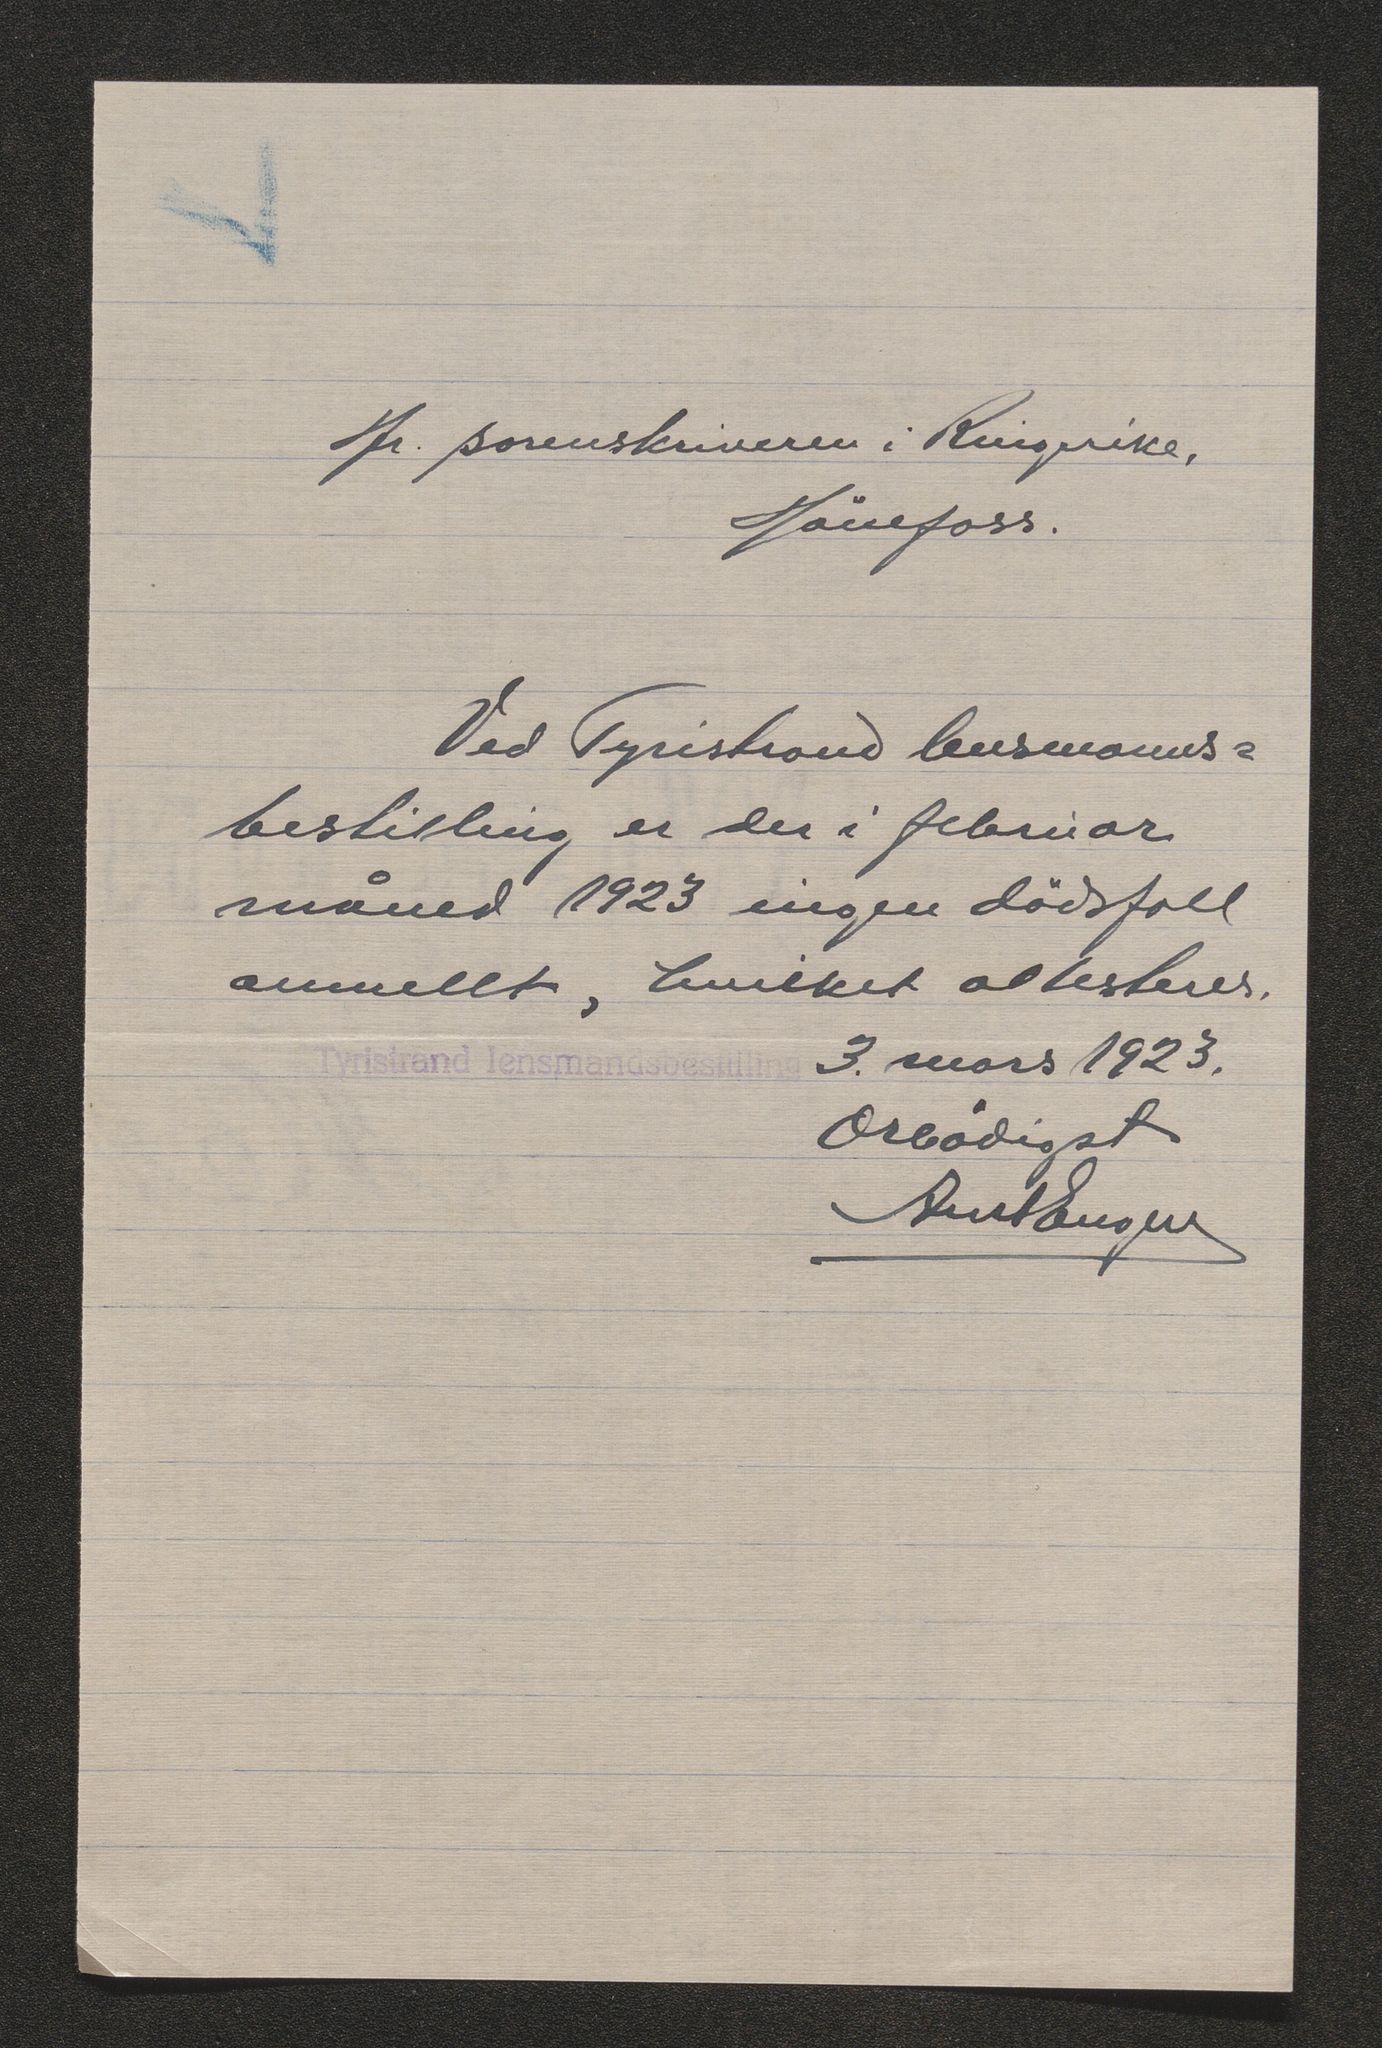 Hr. sorenskriveren i Ringerike,
Hönefoss.
Ved Tyristrand lensmanns=
bestilling er der i februar
måned 1923 ingen dödsfall
anmellt, hvilket attesteres.
Tyristrand lensmandsbestilling 3. mars 1923.
Ærbödigst
Enger